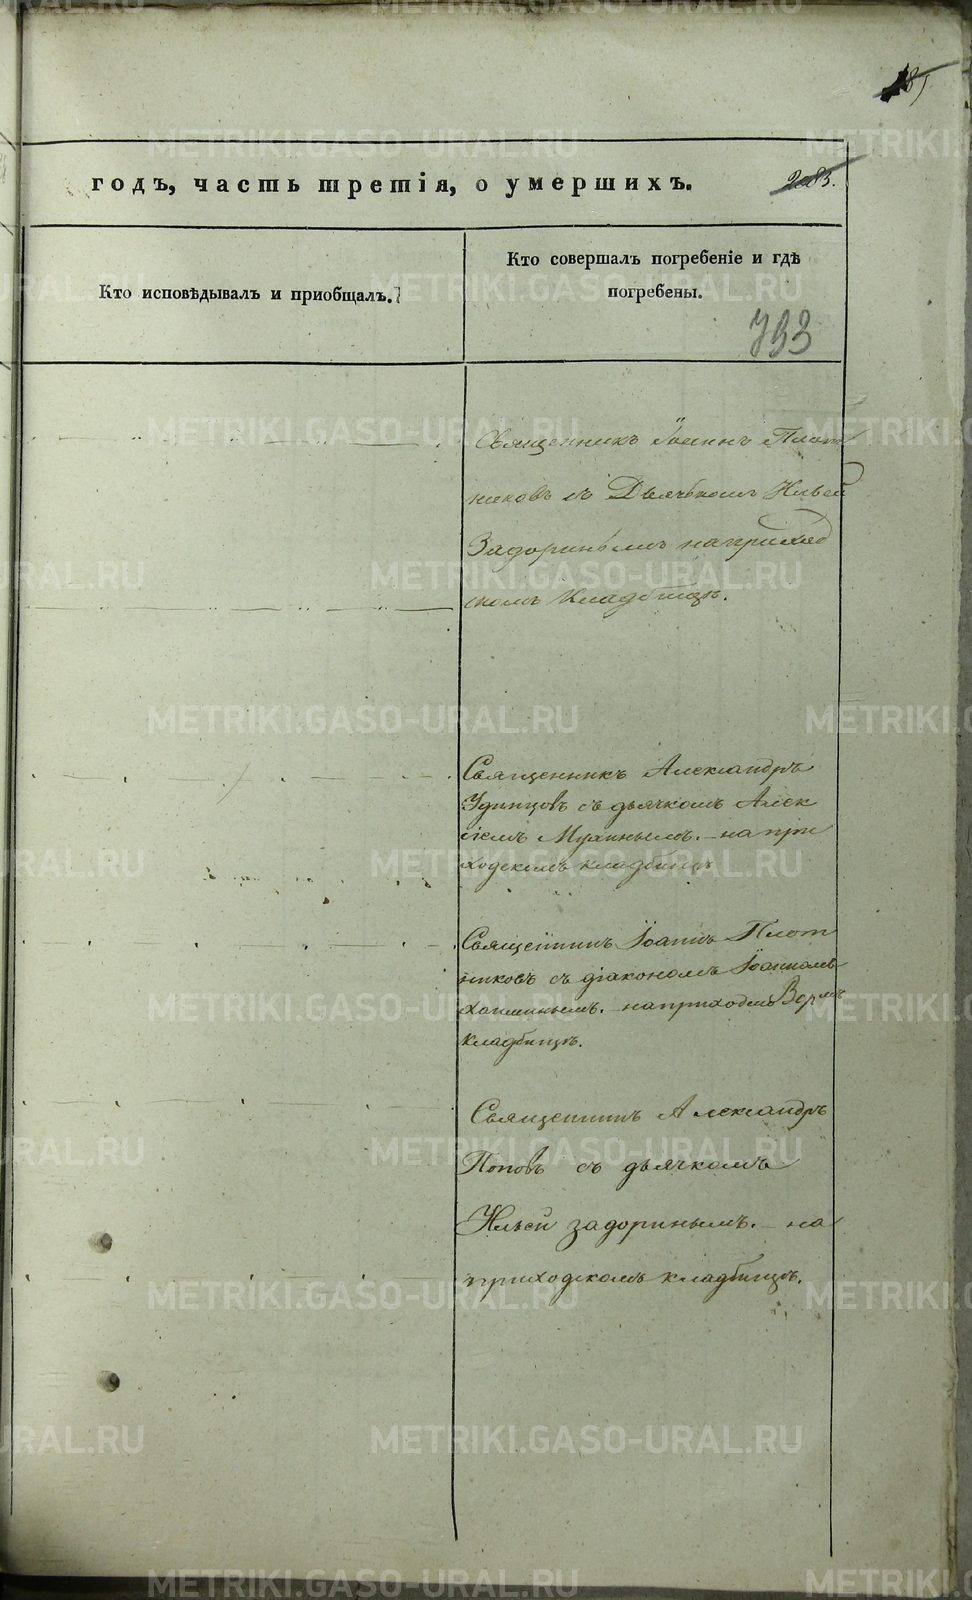 годъ, часть третія, о умершихъ.
2083.
Кто исповѣдывалъ и приобщалъ.
Кто совершалъ погребеніе и гдѣ
погребены.
793
Священникъ Іоаннъ Плот
никовъ съ Дьячкомъ Ильей
Задоринымъ на приход
скомъ Кладбищѣ.
Священникъ Александръ
Удинцовъ съ дьячкомъ Алек
сіемъ на при
ходскомъ кладбищѣ
Священникъ Іоаннъ Плот
никовъ съ діакономъ Іоанномъ
на приходѣ
кладбищѣ.
Священникъ Александръ
Поповъ съ дьячкомъ
Ильей Задоринымъ. на
приходскомъ кладбищѣ.
METRIKI.GASO-URAL.RU